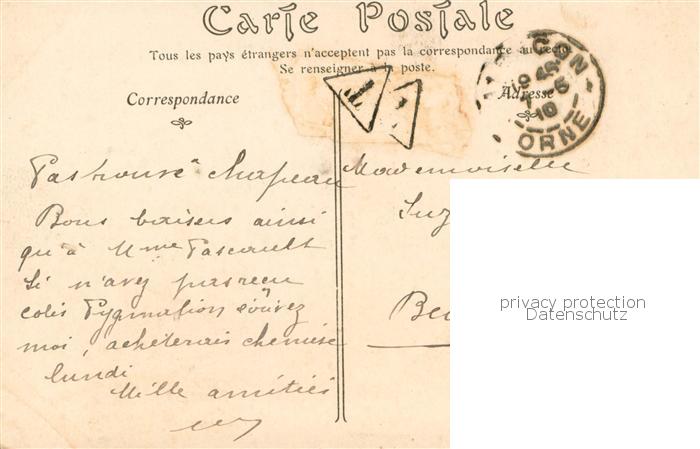 Carte Postale
Tous les pays étrangers n'acceptent pas la correspondance au recto
Se renseigner à la poste.
Correspondance
Adresse
T
ORNE
10
Pas trouvé chapeau
Bons baisers ainsi
qu'à Mme Pascault
Si n'avez pas reçu
colis Pygmalion
moi, achèterais chemise
lundi
Mille amitiés
Mademoiselle
Suz
Be
privacy protection
Datenschutz